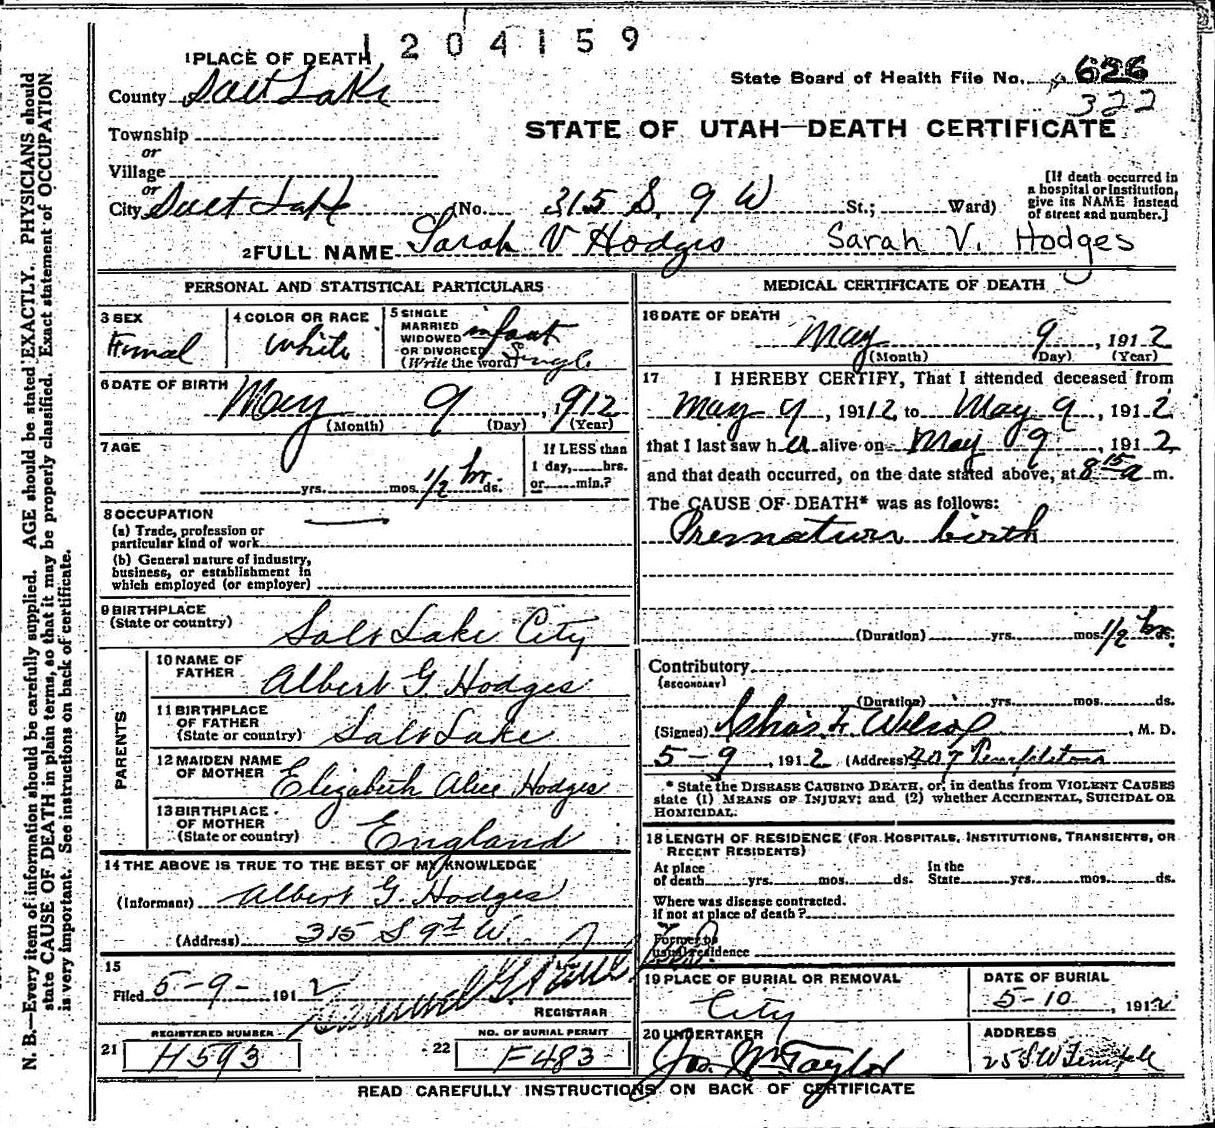 1204159
1 PLACE OF DEATH
State Board of Health File No. 626
322
County Salt Lake
STATE OF UTAH—DEATH CERTIFICATE
Township
or
Village
or
City Salt Lake (No. 315 S. 9 W St.; Ward)
[If death occurred in a hospital or institution, give its NAME instead of street and number.]
2 FULL NAME Sarah V Hodges Sarah V. Hodges
PERSONAL AND STATISTICAL PARTICULARS
3 SEX
Femal
4 COLOR OR RACE
White
5 SINGLE
MARRIED
WIDOWED
OR DIVORCED
(Write the word)
infant
Single
6 DATE OF BIRTH
May 9, 1912
(Month) (Day) (Year)
7 AGE
yrs. mos. 1/2 hr ds.
If LESS than
1 day, hrs.
or min.?
8 OCCUPATION
(a) Trade, profession or
particular kind of work
(b) General nature of industry,
business, or establishment in
which employed (or employer)
9 BIRTHPLACE
(State or country)
Salt Lake City
PARENTS
10 NAME OF
FATHER
Albert G Hodges
11 BIRTHPLACE
OF FATHER
(State or country)
Salt Lake
12 MAIDEN NAME
OF MOTHER
Elizabeth Alice Hodges
13 BIRTHPLACE
OF MOTHER
(State or country)
England
14 THE ABOVE IS TRUE TO THE BEST OF MY KNOWLEDGE
(Informant) Albert G. Hodges
(Address) 315 S 9th W.
15
Filed 5-9- 1912
REGISTRAR
REGISTERED NUMBER
21 H593
NO. OF BURIAL PERMIT
22 F483
MEDICAL CERTIFICATE OF DEATH
16 DATE OF DEATH
May 9, 1912
(Month) (Day) (Year)
17 I HEREBY CERTIFY, That I attended deceased from
May 9, 19112 to May 9, 1912
that I last saw h er alive on May 9, 1912
and that death occurred, on the date stated above, at 8 15 a m.
The CAUSE OF DEATH* was as follows:
Prematur birth
(Duration) yrs. mos. 1/2 hr. ds.
Contributory
(SECONDARY)
(Duration) yrs. mos. ds.
(Signed) Chas F Wilcox, M. D.
5-9, 1912 (Address) 407 Templeton
* State the DISEASE CAUSING DEATH, or, in deaths from VIOLENT CAUSES
state (1) MEANS OF INJURY; and (2) whether ACCIDENTAL, SUICIDAL OR
HOMICIDAL.
18 LENGTH OF RESIDENCE (FOR HOSPITALS, INSTITUTIONS, TRANSIENTS, OR
RECENT RESIDENTS)
At place
of death yrs. mos. ds.
In the
State yrs. mos. ds.
Where was disease contracted.
If not at place of death?
Former or
usual residence
19 PLACE OF BURIAL OR REMOVAL
City
DATE OF BURIAL
5-10, 1912
20 UNDERTAKER
Jos. Wm Taylor
ADDRESS
25 S W Temple
READ CAREFULLY INSTRUCTIONS ON BACK OF CERTIFICATE
N. B.—Every item of information should be carefully supplied. AGE should be stated EXACTLY. PHYSICIANS should
state CAUSE OF DEATH in plain terms, so that it may be properly classified. Exact statement of OCCUPATION
is very important. See instructions on back of certificate.